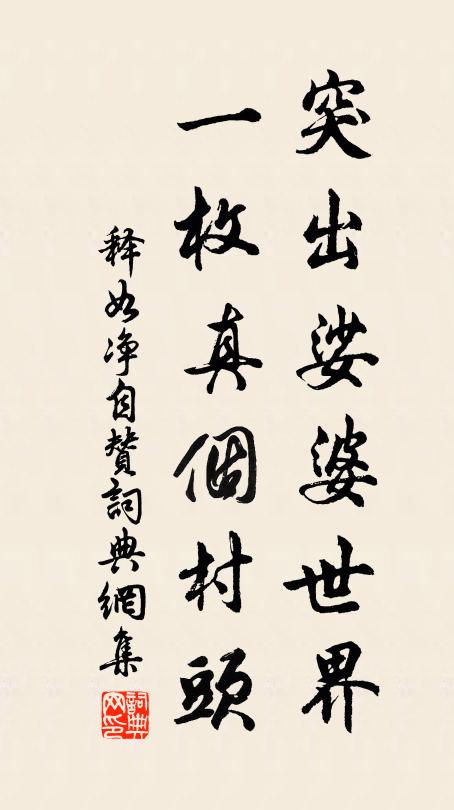 突出娑婆世界
一枚真個村頭
释如净自赞詞典網集
詞典网印